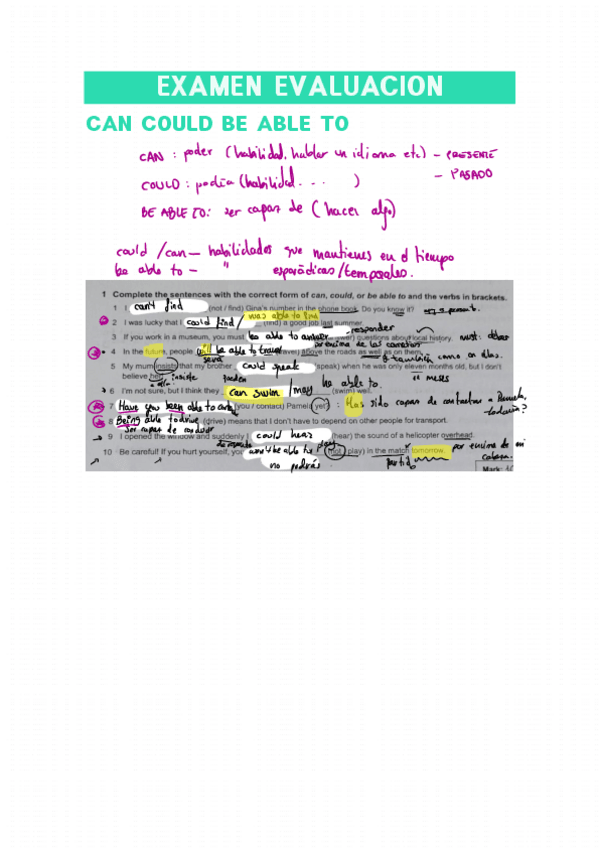 EXAMEN EVALUACION
CAN COULD BE ABLE TO
CAN : poder (habilidad, hablar un idioma etc) - PRESENTE
COULD : podía (habilidad . . . ) - PASADO
BE ABLE TO: ser capaz de (hacer algo)
could /can - habilidades que mantienes en el tiempo
be able to - " esporádicas/temporales.
1 Complete the sentences with the correct form of can, could, or be able to and the verbs in brackets.
1 I can't find (not / find) Gina's number in the phone book. Do you know it?
was able to find
2 I was lucky that I could find / (find) a good job last summer.
responder
3 If you work in a museum, you must be able to answer (answer) questions about local history. must: deber
4 In the future, people will be able to travel (travel) above the roads as well as on them.
5 My mum insists that my brother could speak (speak) when he was only eleven months old, but I don't
believe her. insiste 11 meses
6 I'm not sure, but I think they can swim /may be able to. (swim) well.
7 Have you been able to (you / contact) Pamela yet? : Has sido capaz de contactar a Pamela, todavía?
8 Being able to drive (drive) means that I don't have to depend on other people for transport.
ser capaz de conducir
9 I opened the window and suddenly I could hear (hear) the sound of a helicopter overhead.
10 Be careful! If you hurt yourself, you won't be able to play (not / play) in the match tomorrow.
por encima de mi cabeza.
no podrás partido
Mark: